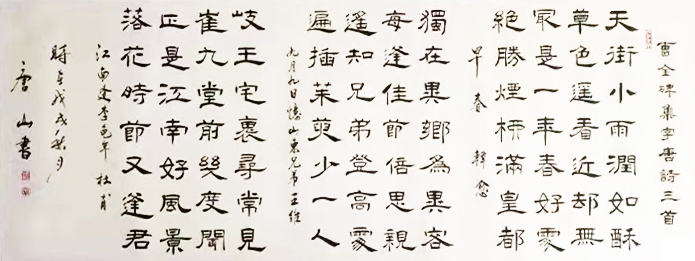 曹全碑集字唐詩三首
天街小雨潤如酥
草色遥看近却無
㝡是一年春好處
絶勝煙柳滿皇都
早春 韓愈
獨在異鄉為異客
每逢佳節倍思親
遥知兄弟登高處
遍插茱萸少一人
九月九日憶山東兄弟 王維
岐王宅裏尋常見
崔九堂前幾度聞
正是江南好風景
落花時節又逢君
江南逢李龜年 杜甫
時在戊戌秋月
唐山書